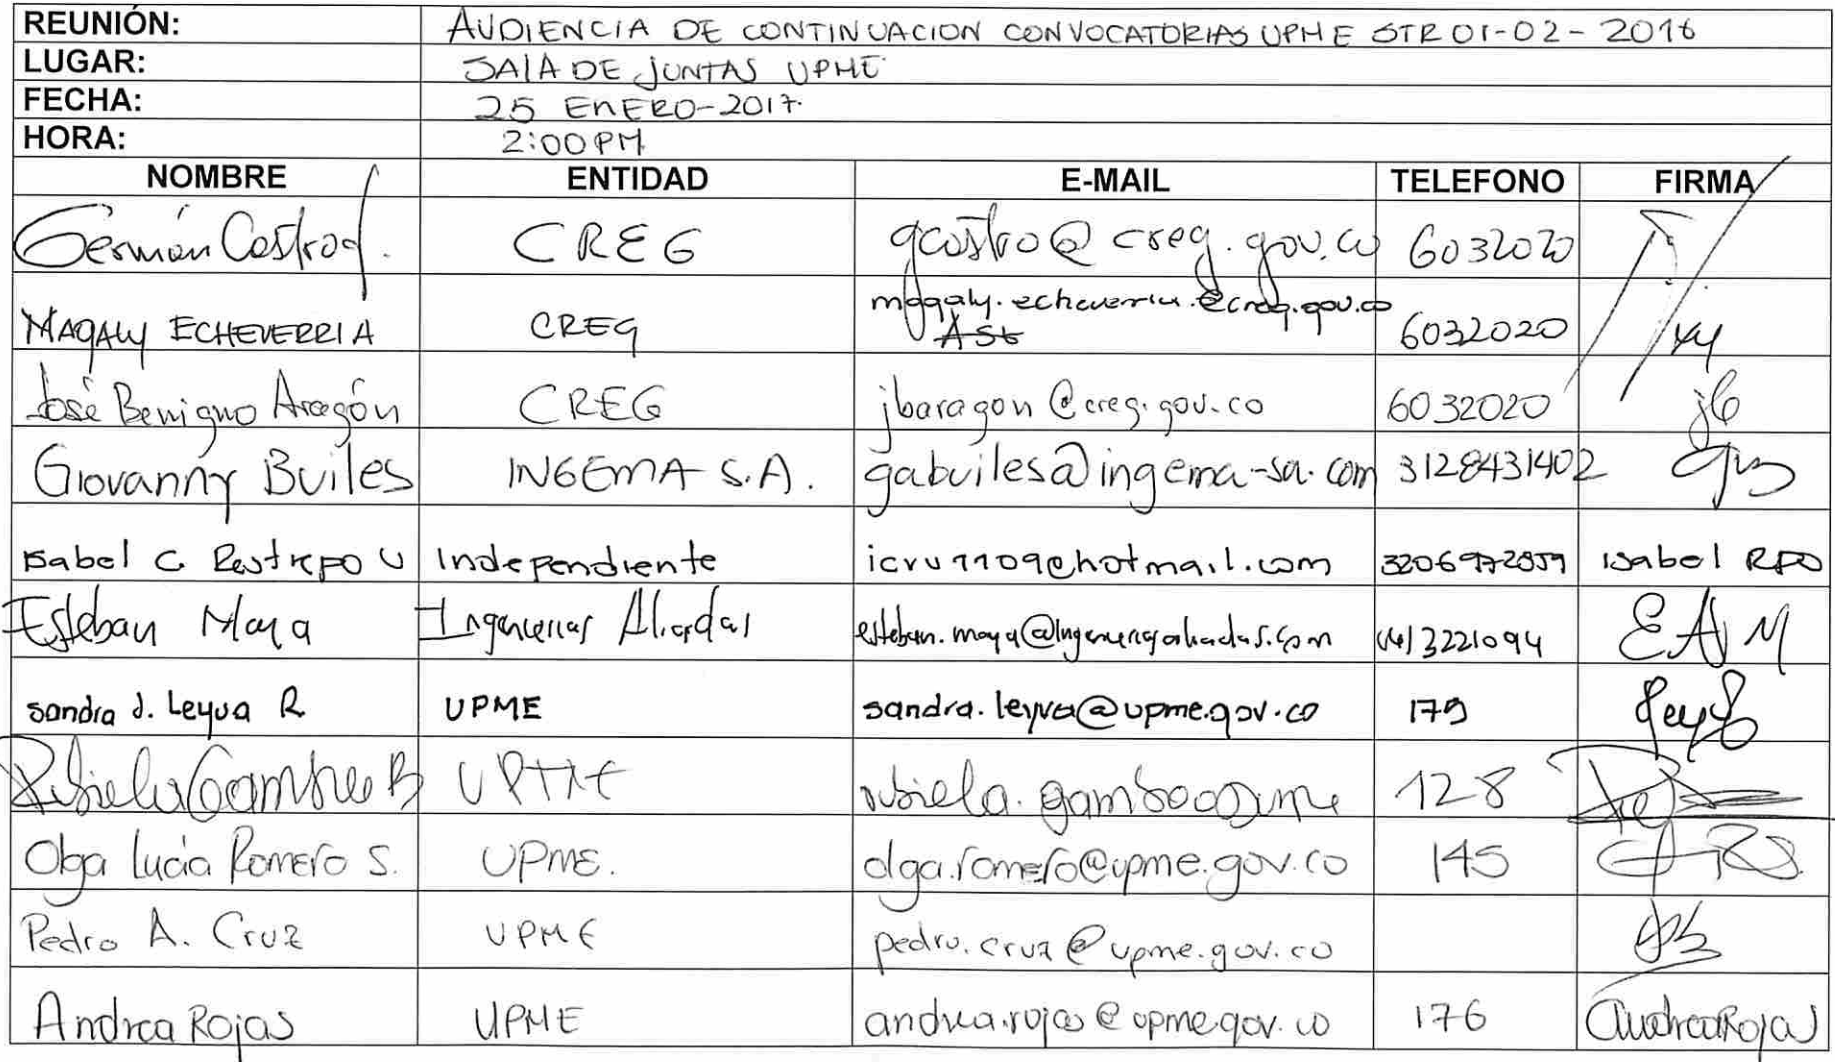 REUNIÓN: AUDIENCIA DE CONTINUACION CONVOCATORIAS UPME STR 01-02-2016
LUGAR: SALA DE JUNTAS UPME
FECHA: 25 ENERO-2017.
HORA: 2:00 PM
NOMBRE ENTIDAD E-MAIL TELEFONO FIRMA
Germán Castro CREG gcastro@creg.gov.co 6032020
MAGALY ECHEVERRIA CREG magaly.echeverria@creg.gov.co 6032020
José Benigno Aragón CREG jbaragon@creg.gov.co 6032020 jb
Giovanny Builes INGEMA S.A. gabuiles@ingema-sa.com 3128431402
Isabel C Restrepo U Independiente icru1109@hotmail.com Isabel RPO
Esteban Maya Ingenierias Aliadas esteban.maya@ingenieriasaliadas.com (4) 3221094 EAM
Sandra J. Leyva R UPME sandra.leyva@upme.gov.co 179
Rubiela Gamboa B UPME rubiela.gamboa@upme 128
Olga Lucía Romero S. UPME. olga.romero@upme.gov.co 145
Pedro A. Cruz UPME pedro.cruz@upme.gov.co
Andrea Rojas UPME andrea.rojas@upme.gov.co 176 Andrea Rojas